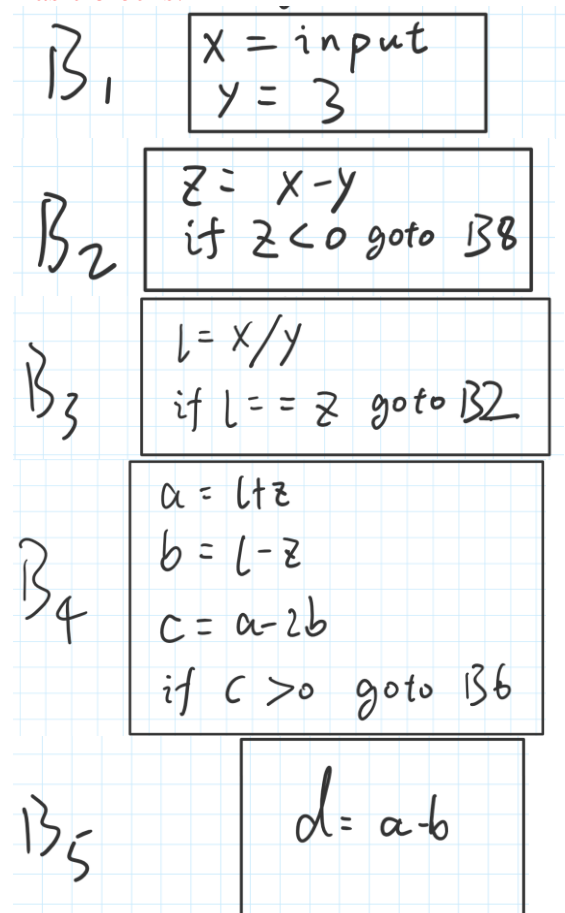 B1
x = input
y = 3
B2
z = x-y
if z<0 goto B8
B3
l = x/y
if l == z goto B2
B4
a = l+z
b = l-z
c = a-2b
if c >0 goto B6
B5
d = a-b